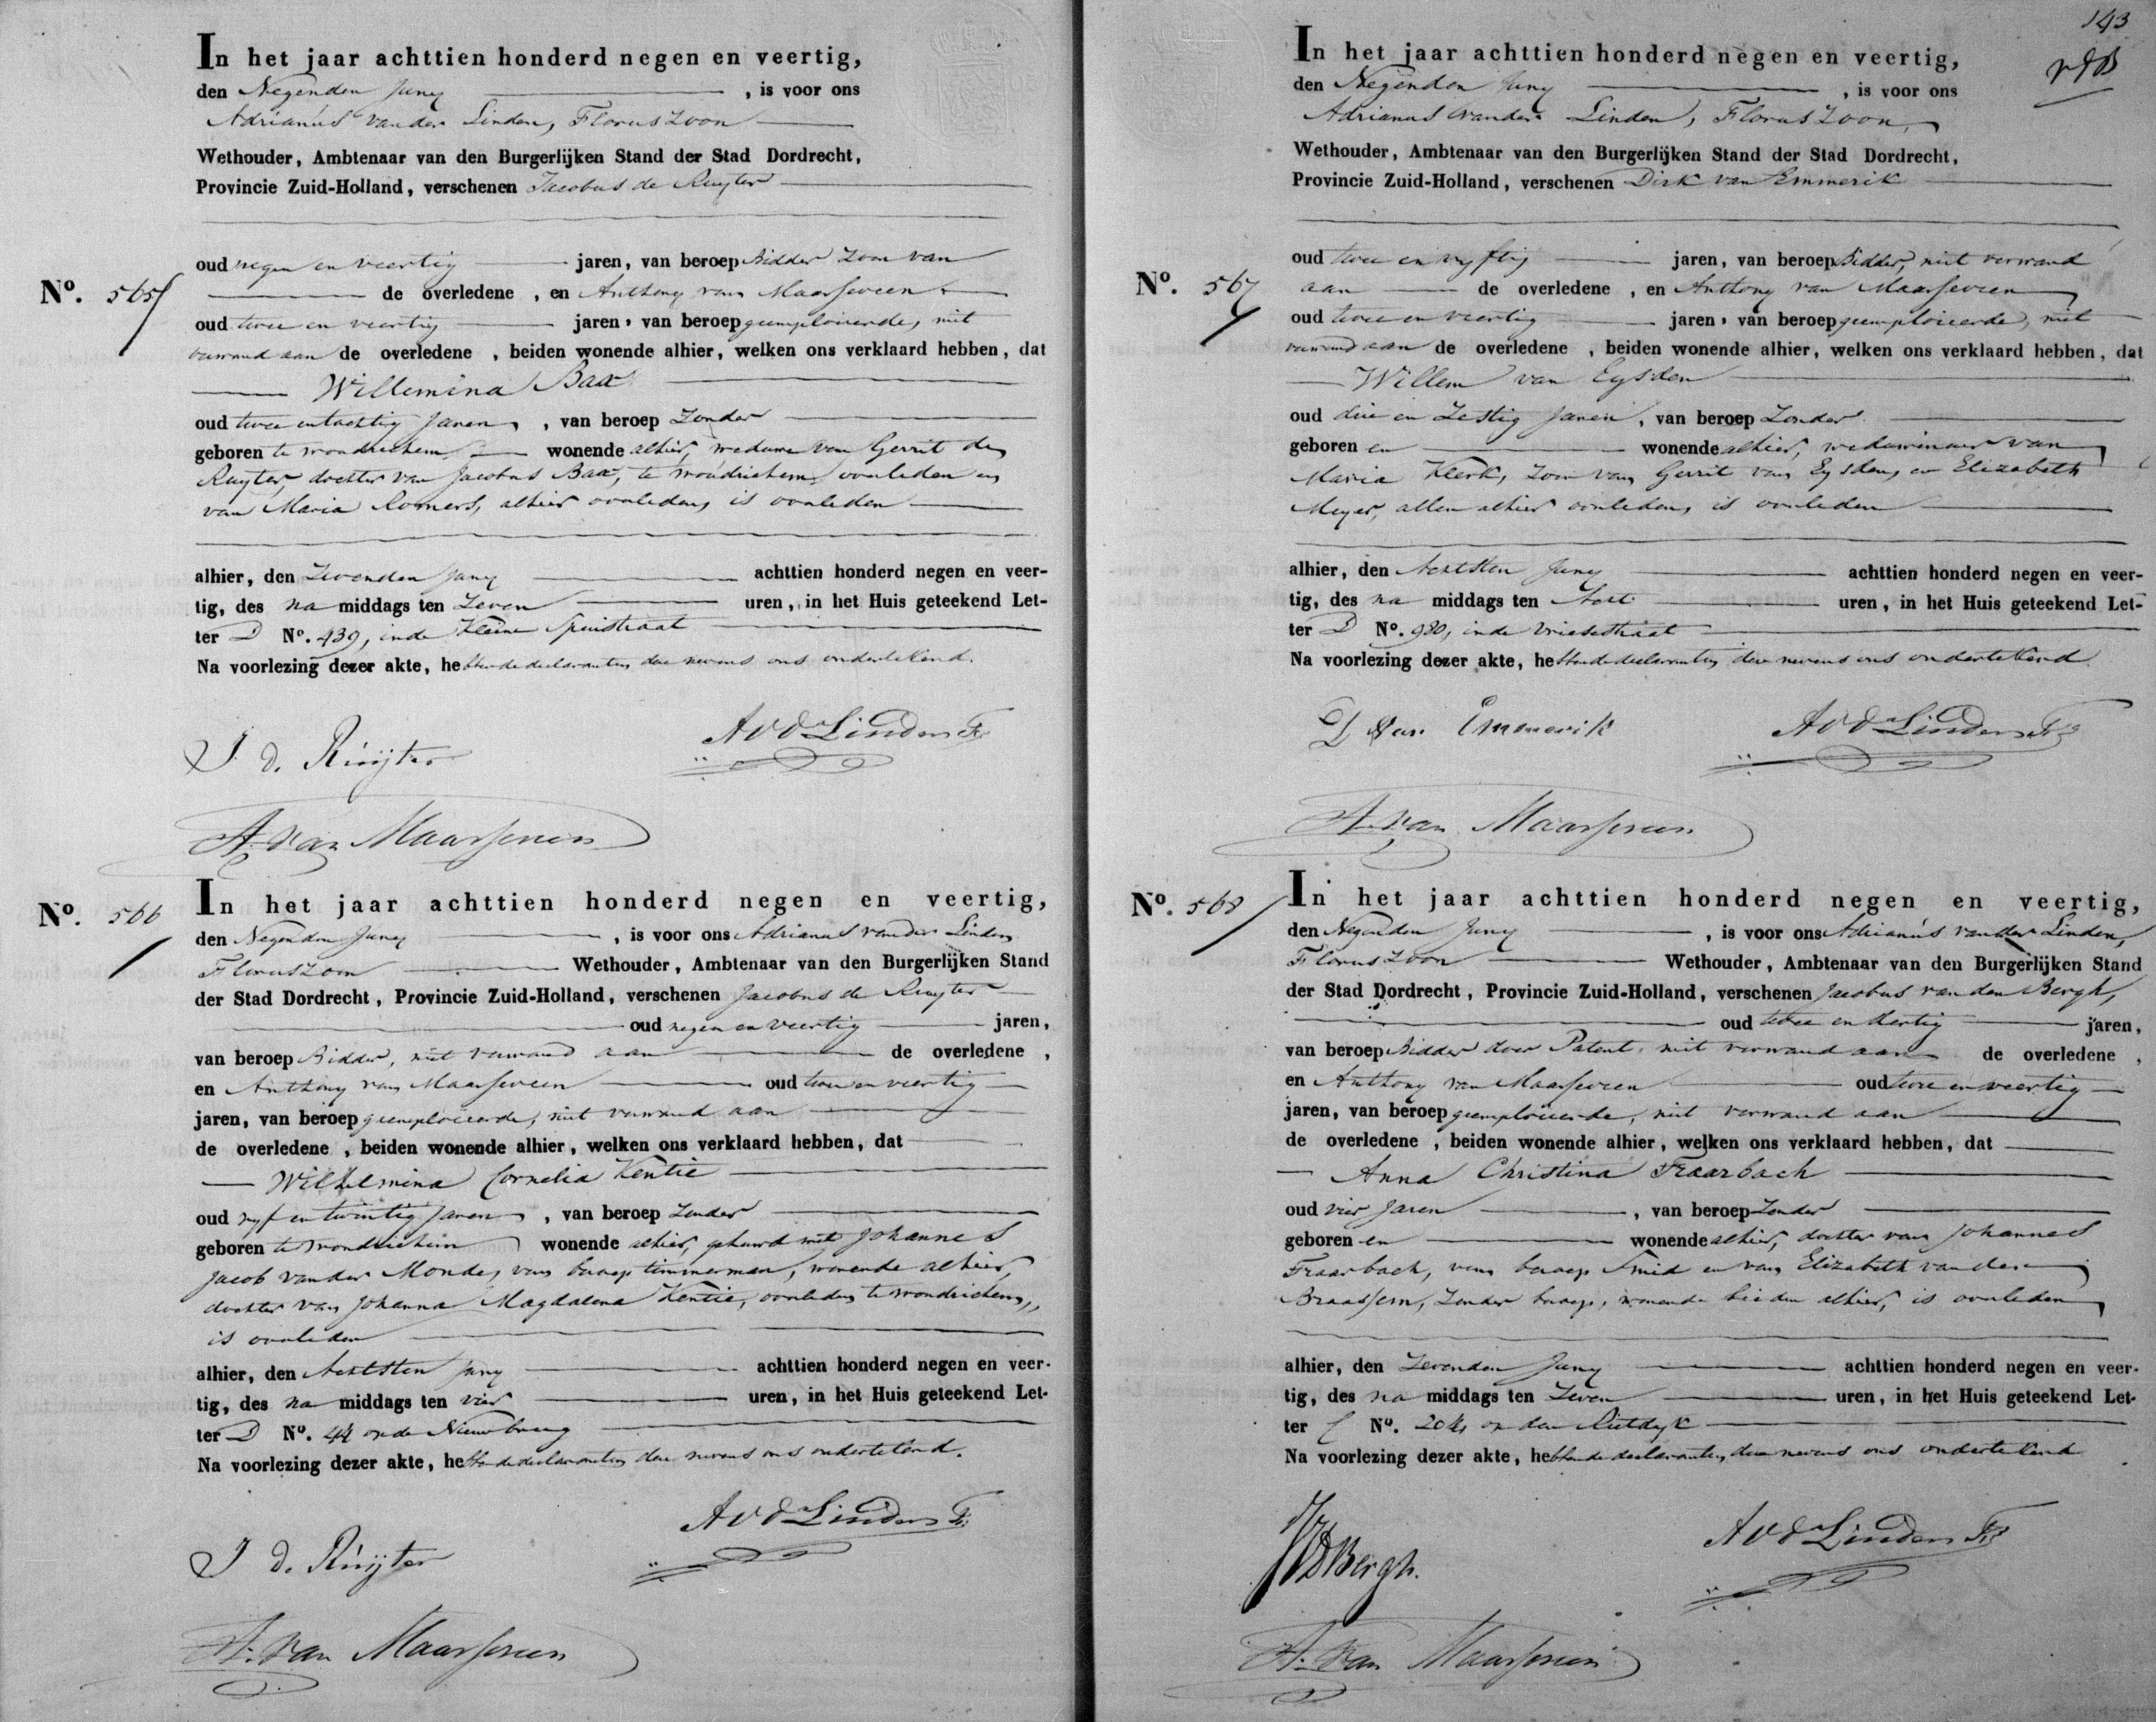 In het jaar achttien honderd negen en veertig,
den Negenden Juny , is voor ons
Adrianus van der Linden, Floruszoon
Wethouder, Ambtenaar van den Burgerlijken Stand der Stad Dordrecht,
Provincie Zuid-Holland, verschenen Jacobus de Ruyter
oud negen en veertig jaren, van beroep Bidder Zoon van
No. 565 de overledene , en Anthony van Maarseveen
oud twee en veertig jaren, van beroep geemploieerde, niet
verwand aan de overledene , beiden wonende alhier, welken ons verklaard hebben, dat
Willemina Bax
oud twee en tachtig Jaren , van beroep Zonder
geboren te Woudrichem wonende alhier, weduwe van Gerrit de
Ruyter, dochter van Jacobus Bax, te Woudrichem overleden en
van Maria Romers, alhier overleden, is overleden
alhier, den Zevenden Juny achttien honderd negen en veer-
tig, des na middags ten Zeven uren, in het Huis geteekend Let-
ter D No. 439, in de Kleine Spuistraat
Na voorlezing dezer akte, hebben de declaranten deze nevens ons ondertekend.
J. d. Ruijter
AvdLinden Fz
A. van Maarseveen
No. 566
In het jaar achttien honderd negen en veertig,
den Negenden Juny , is voor ons Adrianus van der Linden
Floruszoon Wethouder, Ambtenaar van den Burgerlijken Stand
der Stad Dordrecht, Provincie Zuid-Holland, verschenen Jacobus de Ruyter
oud negen en veertig jaren,
van beroep Bidder, niet verwand aan de overledene ,
en Anthony van Maarseveen oud twee en veertig
jaren, van beroep geemploieerde, niet verwand aan
de overledene , beiden wonende alhier, welken ons verklaard hebben, dat
Wilhelmina Cornelia Kentie
oud vyf en twintig Jaren , van beroep Zonder
geboren te Woudrichem wonende alhier, gehuwd met Johannes
Jacob van der Monde, van beroep timmerman, wonende alhier,
dochter van Johanna Magdalena Kentie, overleden te Woudrichem,
is overleden
alhier, den Achtsten Juny achttien honderd negen en veer-
tig, des na middags ten vier uren, in het Huis geteekend Let-
ter D No. 44 op de Nieuwbrug
Na voorlezing dezer akte, hebben de declaranten deze nevens ons ondertekend.
J d. Ruijter
AvdLinden Fz
A. van Maarseveen
143
In het jaar achttien honderd negen en veertig,
den Negenden Juny , is voor ons
Adrianus van der Linden, Floruszoon,
Wethouder, Ambtenaar van den Burgerlijken Stand der Stad Dordrecht,
Provincie Zuid-Holland, verschenen Dirk van Emmerik
oud twee en vyftig jaren, van beroep Bidder, niet verwand
No. 567 aan de overledene , en Anthony van Maarseveen
oud twee en veertig jaren, van beroep geemploieerde, niet
verwand aan de overledene , beiden wonende alhier, welken ons verklaard hebben, dat
Willem van Eysden
oud drie en Zestig Jaren , van beroep Zonder
geboren en wonende alhier, weduwenaar van
Maria Klerk, Zoon van Gerrit van Eysden, en Elizabeth
Meyer, allen alhier overleden, is overleden
alhier, den Achtsten Juny achttien honderd negen en veer-
tig, des na middags ten Acht uren, in het Huis geteekend Let-
ter D No. 980, in de Vriesestraat
Na voorlezing dezer akte, hebben de declaranten deze nevens ons ondertekend
D van Emmerik
AvdLinden Fz
A. van Maarseveen
No. 568
In het jaar achttien honderd negen en veertig,
den Negenden Juny , is voor ons Adrianus van der Linden,
Floruszoon Wethouder, Ambtenaar van den Burgerlijken Stand
der Stad Dordrecht, Provincie Zuid-Holland, verschenen Jacobus van den Bergh,
oud twee en dertig jaren,
van beroep Bidder door Patent, niet verwand aan de overledene ,
en Anthony van Maarseveen oud twee en veertig
jaren, van beroep geemploieerde, niet verwand aan
de overledene , beiden wonende alhier, welken ons verklaard hebben, dat
Anna Christina Fraarbach
oud vier Jaren , van beroep Zonder
geboren en wonende alhier, dochter van Johannes
Fraarbach, van beroep Smid en van Elizabeth van der
Braassem, Zonder beroep, wonende beiden alhier, is overleden
alhier, den Zevenden Juny achttien honderd negen en veer-
tig, des na middags ten Zeven uren, in het Huis geteekend Let-
ter C No. 204, op den Rietdyk
Na voorlezing dezer akte, hebben de declaranten, deze nevens ons ondertekend
JVDBergh.
AvdLinden Fz
A. van Maarseveen